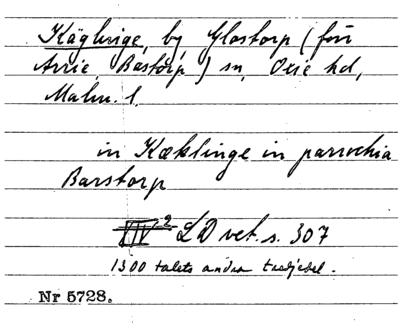 Käglinge, by, Glostorp (förr
Arrie, Bastorp) sn, Oxie hd,
Malm. l.
in Kæklinge in parrochia
Barstorp
XIV 2 LD vet. s. 307
1300 talets andra tredjedel.
Nr 5728.